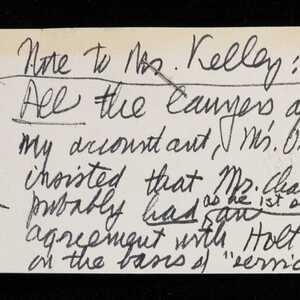 Note to Mr. Kelley:
All the lawyers a
my accountant, Ms.
insisted that Mr. Cha
probably had
as he 1st
agreement with Holt
on the basis of "servic